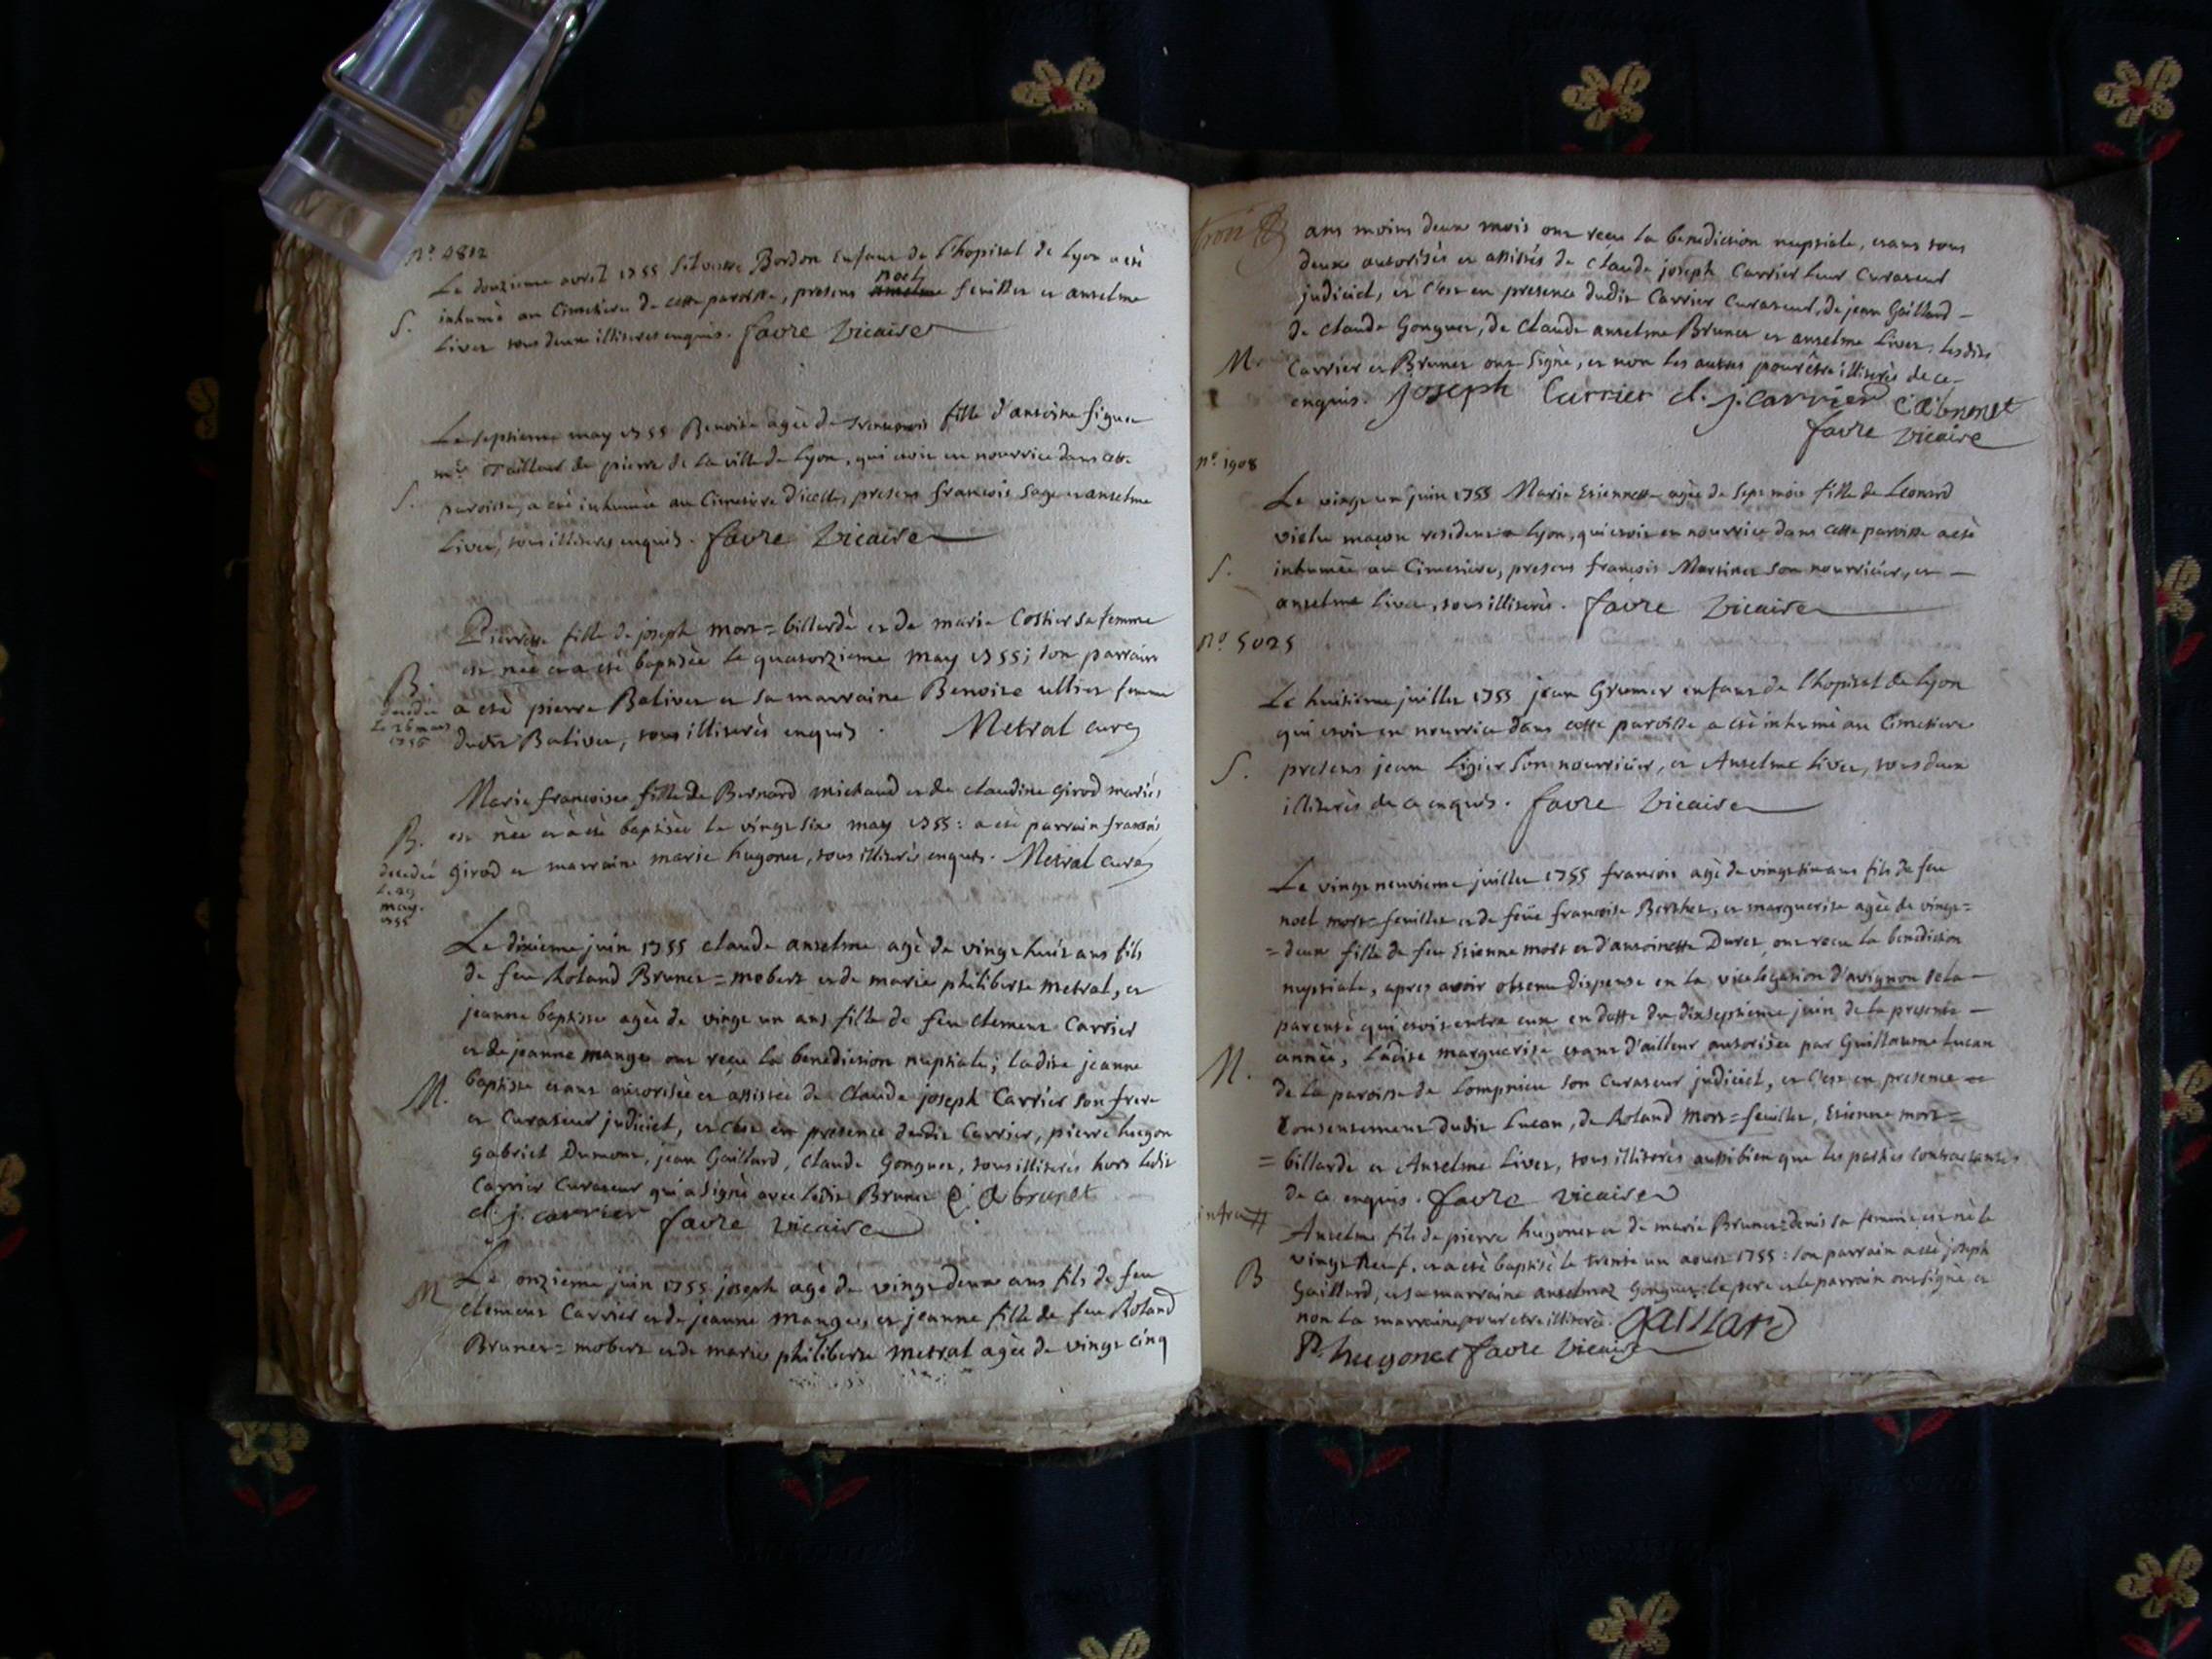 n.º 4812
Le douzieme avril 1755 Silvestre Bordon enfant de l'hopital de Lyon a été
noel
inhumé au Cimetiere de cette paroisse, presens anselme feuillet et anselme
S.
Livet tous deux illiterés enquis. favre vicaire
Le septieme may 1755 Benoite agée de trente mois fille d'antoine
mtre tailleur de pierre de la ville de Lyon, qui etoit en nourrice dans cette
S.
paroisse, a été inhumée au Cimetiere d'icelle, presens francois Sage et anselme
Livet, tous illiterés enquis. favre vicaire
Pierrette fille de joseph mort=billarde et de marie Costier sa femme
est née et a été baptisée le quatorzieme may 1755; son parrain
B.
decedée
le 26 mars
1756
a été pierre Balivet et sa marraine Benoite ullier femme
dudit Balivet, tous illiterés enquis. Metral curé
Marie francoise fille de Bernard michaud et de claudine Girod mariés
est née et a été baptisée le vingt six may 1755: a été parrain francois
B.
decedée
le 29
may.
1755
Girod et marraine marie hugonet, tous illiterés enquis. Metral curé
Le dixieme juin 1755 claude anselme agé de vingt huit ans fils
de feu Roland Brunet=mobert et de marie philiberte metral, et
jeanne baptiste agée de vingt un ans fille de feu clement Carrier
et de jeanne mange ont reçu la benediction nuptiale; ladite jeanne
M.
baptiste etant autorisée et assistée de Claude joseph Carrier son frere
et Curateur judiciel, et c'est en présence dudit Carrier, pierre hugon
gabriel Dumont, jean Gaillard, claude Gonguet, tous illiterés hors ledit
Carrier Curateur qui a signé avec ledit Brunet C. a brunet
cl. j. carrier favre vicaire
M
Le onzieme juin 1755 joseph agé de vingt deux ans fils de feu
clement Carrier et de jeanne mange, et jeanne fille de feu Roland
Brunet=mobert et de marie philiberte metral agée de vingt cinq
ans moins deux mois ont reçu la benediction nuptiale, etans tous
deux autorisés et assistés de Claude joseph Carrier leur Curateur
judiciel, et c'est en presence dudit Carrier Curateur, de jean Gaillard
de Claude Gonguet, de Claude anselme Brunet et anselme Livet, lesdits
M.
Carrier et Brunet ont signé, et non les autres pour être illiterés de ce
enquis. joseph Carrier cl. j. carrier C a brunet
favre vicaire
n.º 1908
Le vingt un juin 1755 Marie Etiennette agée de sept mois fille de Leonard
maçon residant a Lyon, qui etoit en nourrice dans cette paroisse a été
S.
inhumée au Cimetiere, presens françois Martinet son nourricier, et
anselme Livet, tous illiterés. favre vicaire
n.º 5025
Le huitieme juillet 1755 jean Grumet enfant de l'hopital de Lyon
qui etoit en nourrice dans cette paroisse a été inhumé au Cimetiere
S.
presens jean Ligier son nourricier, et Anselme Livet, tous deux
illiterés de ce enquis. favre vicaire
Le vingt neuvieme juillet 1755 francois agé de vingt six ans fils de feu
noel mort=feuillet et de feüe francoise Berthet, et marguerite agée de vingt=
=deux fille de feu Etienne mort et d'antoinette Duret, ont reçu la benediction
nuptiale, apres avoir obtenu dispense en la vicelégation d'avignon de la
parenté qui etoit entre eux en datte du dixseptieme juin de la presente
M.
année, Ladite marguerite etant d'ailleur autorisée par Guillaume Lucan
de la paroisse de Lompnieu son Curateur judiciel, et c'est en presence et
consentement dudit Lucan, de Roland mort=feuillet, Etienne mort=
=billarde et Anselme Livet, tous illiterés aussi bien que les parties contractantes
de ce enquis. favre vicaire
Anselme fils de pierre hugonet et de marie Brunet=denis sa femme est né le
vingt neuf, et a été baptisé le trente un aoust 1755: son parrain a été joseph
B
Gaillard, et sa marraine anselmaz Gonguet: le pere et le parrain ont signé et
non la marraine pour etre illiterée. GAILLARD
P. hugonet favre vicaire